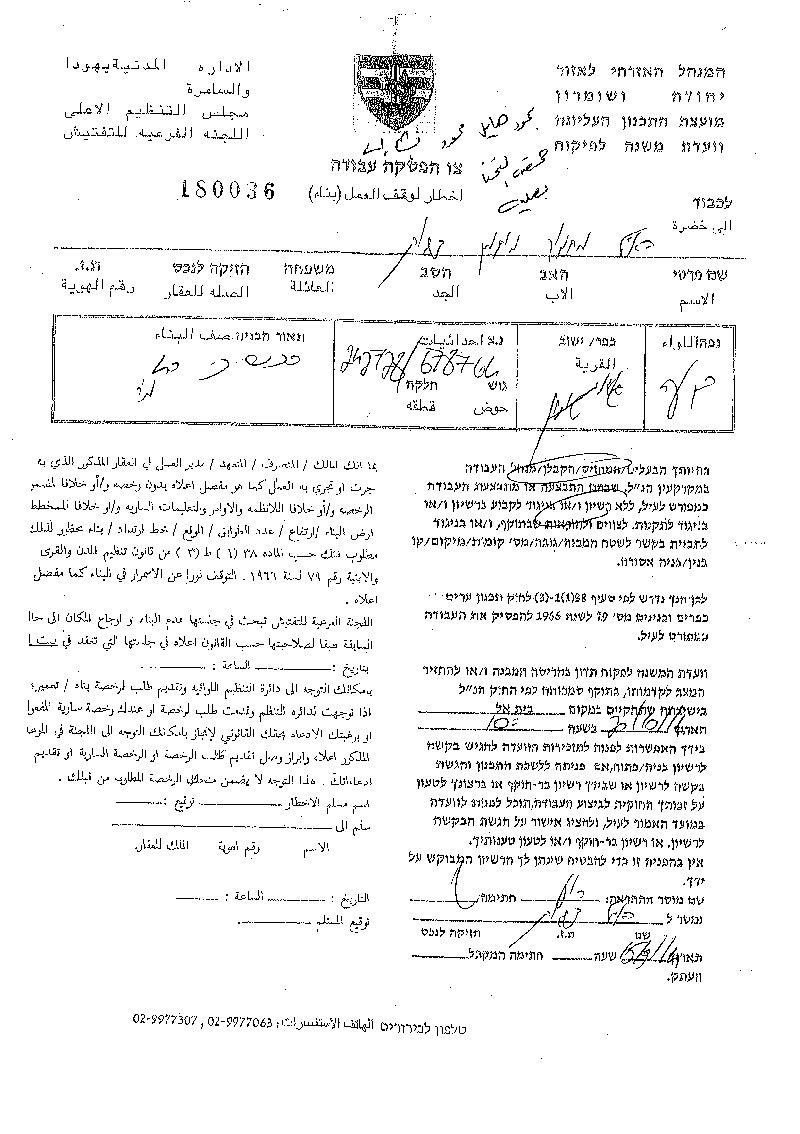 המנהל האזרחי לאזור
יהודה ושומרון
מועצת התכנון העליונה
וועדת משנה לפיקוח
الاداره المدنية يهودا
والسامرة
مجلس التنظيم الاعلى
اللجنه الفرعيه للتفتيش
צו הפסקת עבודה
اخطار لوقف العمل (بناء)
180036
לכבוד
الى حضرة
שם פרטי האב הסב משפחה הזיקה לנכס ת.ז.
الاسم الاب الجد العائلة الصله للعقار رقم الهوية
נפה/اللواء
כפר/ ישוב
القرية
נ.צ احداثيات
247728/678764
גוש חלקה
حوض قطعه
תאור הבניה صف البناء
בהיותך הבעלים/המחזיק/הקבלן/מנהל העבודה
במקרקעין הנ"ל, שבהם התבצעה או מתבצעת העבודה
כמפורט לעיל, ללא רשיון ו/או בניגוד לקבוע ברשיון ו/או
בניגוד לתקנות, לצווים ולהוראות שבתוקף, ו/או בניגוד
לתכנית בקשר לשטח המבנה/גובה/מס' קומות/מיקום/קו
בנין/בניה אסורה.
לכן הנך נדרש לפי סעיף 38(1)-(3) לחוק תכנון ערים
כפרים ובנינים מס' 79 לשנת 1966 להפסיק את העבודה
כמפורט לעיל.
וועדת המשנה לפקוח תדון בהריסת המבנה ו/או להחזיר
המצב לקדמותו, בתוקף סמכותה לפי החוק הנ"ל
בישיבתה שתתקיים במקום בית אל
תאריך בשעה 10:00
בידך האפשרות לפנות למזכירות הוועדה להגיש בקשה
לרשיון בניה/פתוח, אם פניתה ללשכת התכנון והגשת
בקשה לרשיון או שבידך רשיון בר-תוקף או ברצונך לטעון
על זכותך החוקית לביצוע העבודה, תוכל לפנות לוועדה
במועד האמור לעיל, ולהציג אישור על הגשת הבקשה
לרשיון, או רשיון בר-תוקף ו/או לטעון טענותיך.
אין בהפניה זו כדי להבטיח שינתן לך הרשיון המבוקש על
ידך.
שם מוסר ההתראה: חתימה
נמסר ל
שם ת.ז. הזיקה לנכס
תאריך שעה חתימה המקבל
העתק.
بما انك المالك / المتصرف / المتعهد / مدير العمل في العقار المذكور الذي به
جرت او تجري به العمل كما هو مفصل اعلاه بدون رخصه و/أو خلافا
الرخصه و/أو خلافا للانظمه والاوامر والتعليمات الساريه و/او خلافا للمخطط
ارض البناء /ارتفاع / عدد الطوابق / الموقع / خط ارتداد / بناء محظور لذلك
مطلوب منك حسب الماده ٣٨ (١) ط (٣) من قانون تنظيم المدن والقرى
والابنية رقم ٧٩ لسنة ١٩٦٦ . التوقف فورا عن الاستمرار في البناء كما مفصل
اعلاه .
اللجنة الفرعية للتفتيش تبحث في جلستها هدم البناء و ارجاع المكان الى حالته
السابقة طبقا لصلاحيتها حسب القانون اعلاه في جلستها التي تنعقد في
بتاريخ : الساعة :
بامكانك التوجه الى دائرة التنظيم اللوائيه وتقديم طلب لرخصة بناء / تعمير،
اذا توجهت لدائره التنظيم وقدمت طلب لرخصة او عندك رخصة سارية المفعول
او برغبتك الادعاء بحقك القانوني لإنجاز بامكانك التوجه الى اللجنة في الموعد
المذكور اعلاه وابراز وصل تقديم طلب الرخصة او الرخصة السارية او تقديم
ادعاءاتك . هذا التوجه لا يضمن منحك الرخصة المطلوبه من قبلك .
اسم مسلم الاخطار توقيع :
سلم الى
الاسم رقم الهوية المالك للعقار
التاريخ : الساعة :
توقيع المستلم
טלפון לבירורים الهاتف الاستفسارات : 02-9977063 , 02-9977307